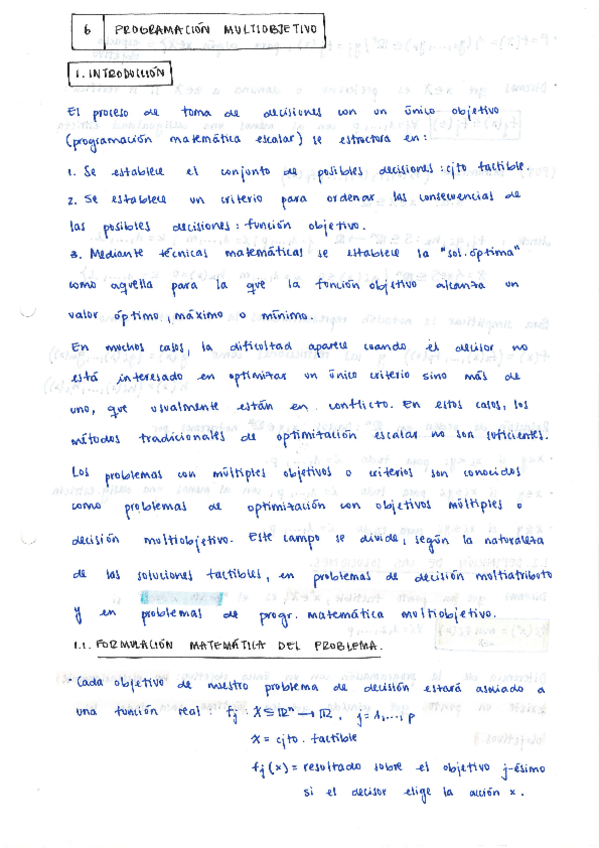 6 PROGRAMACIÓN MULTIOBJETIVO
1. INTRODUCCIÓN
El proceso de toma de decisiones con un único objetivo
(programación matemática escalar) se estructura en:
1. Se establece el conjunto de posibles decisiones: cjto factible.
2. Se establece un criterio para ordenar las consecuencias de
las posibles decisiones: función objetivo.
3. Mediante técnicas matemáticas se establece la "sol. óptima"
como aquella para la que la función objetivo alcanza un
valor óptimo, máximo o mínimo.
En muchos casos, la dificultad aparece cuando el decisor no
está interesado en optimizar un único criterio sino más de
uno, que usualmente están en conflicto. En estos casos, los
métodos tradicionales de optimización escalar no son suficientes.
Los problemas con múltiples objetivos o criterios son conocidos
como problemas de optimización con objetivos múltiples o
decisión multiobjetivo. Este campo se divide, según la naturaleza
de las soluciones factibles, en problemas de decisión multiatributo
y en problemas de progr. matemática multiobjetivo.
1.1. FORMULACIÓN MATEMÁTICA DEL PROBLEMA.
· Cada objetivo de nuestro problema de decisión estará asociado a
una función real: fj: X ⊆ ℝⁿ → ℝ, j=1,...,p
X = cjto. factible
fj(x) = resultado sobre el objetivo j-ésimo
si el decisor elige la acción x.